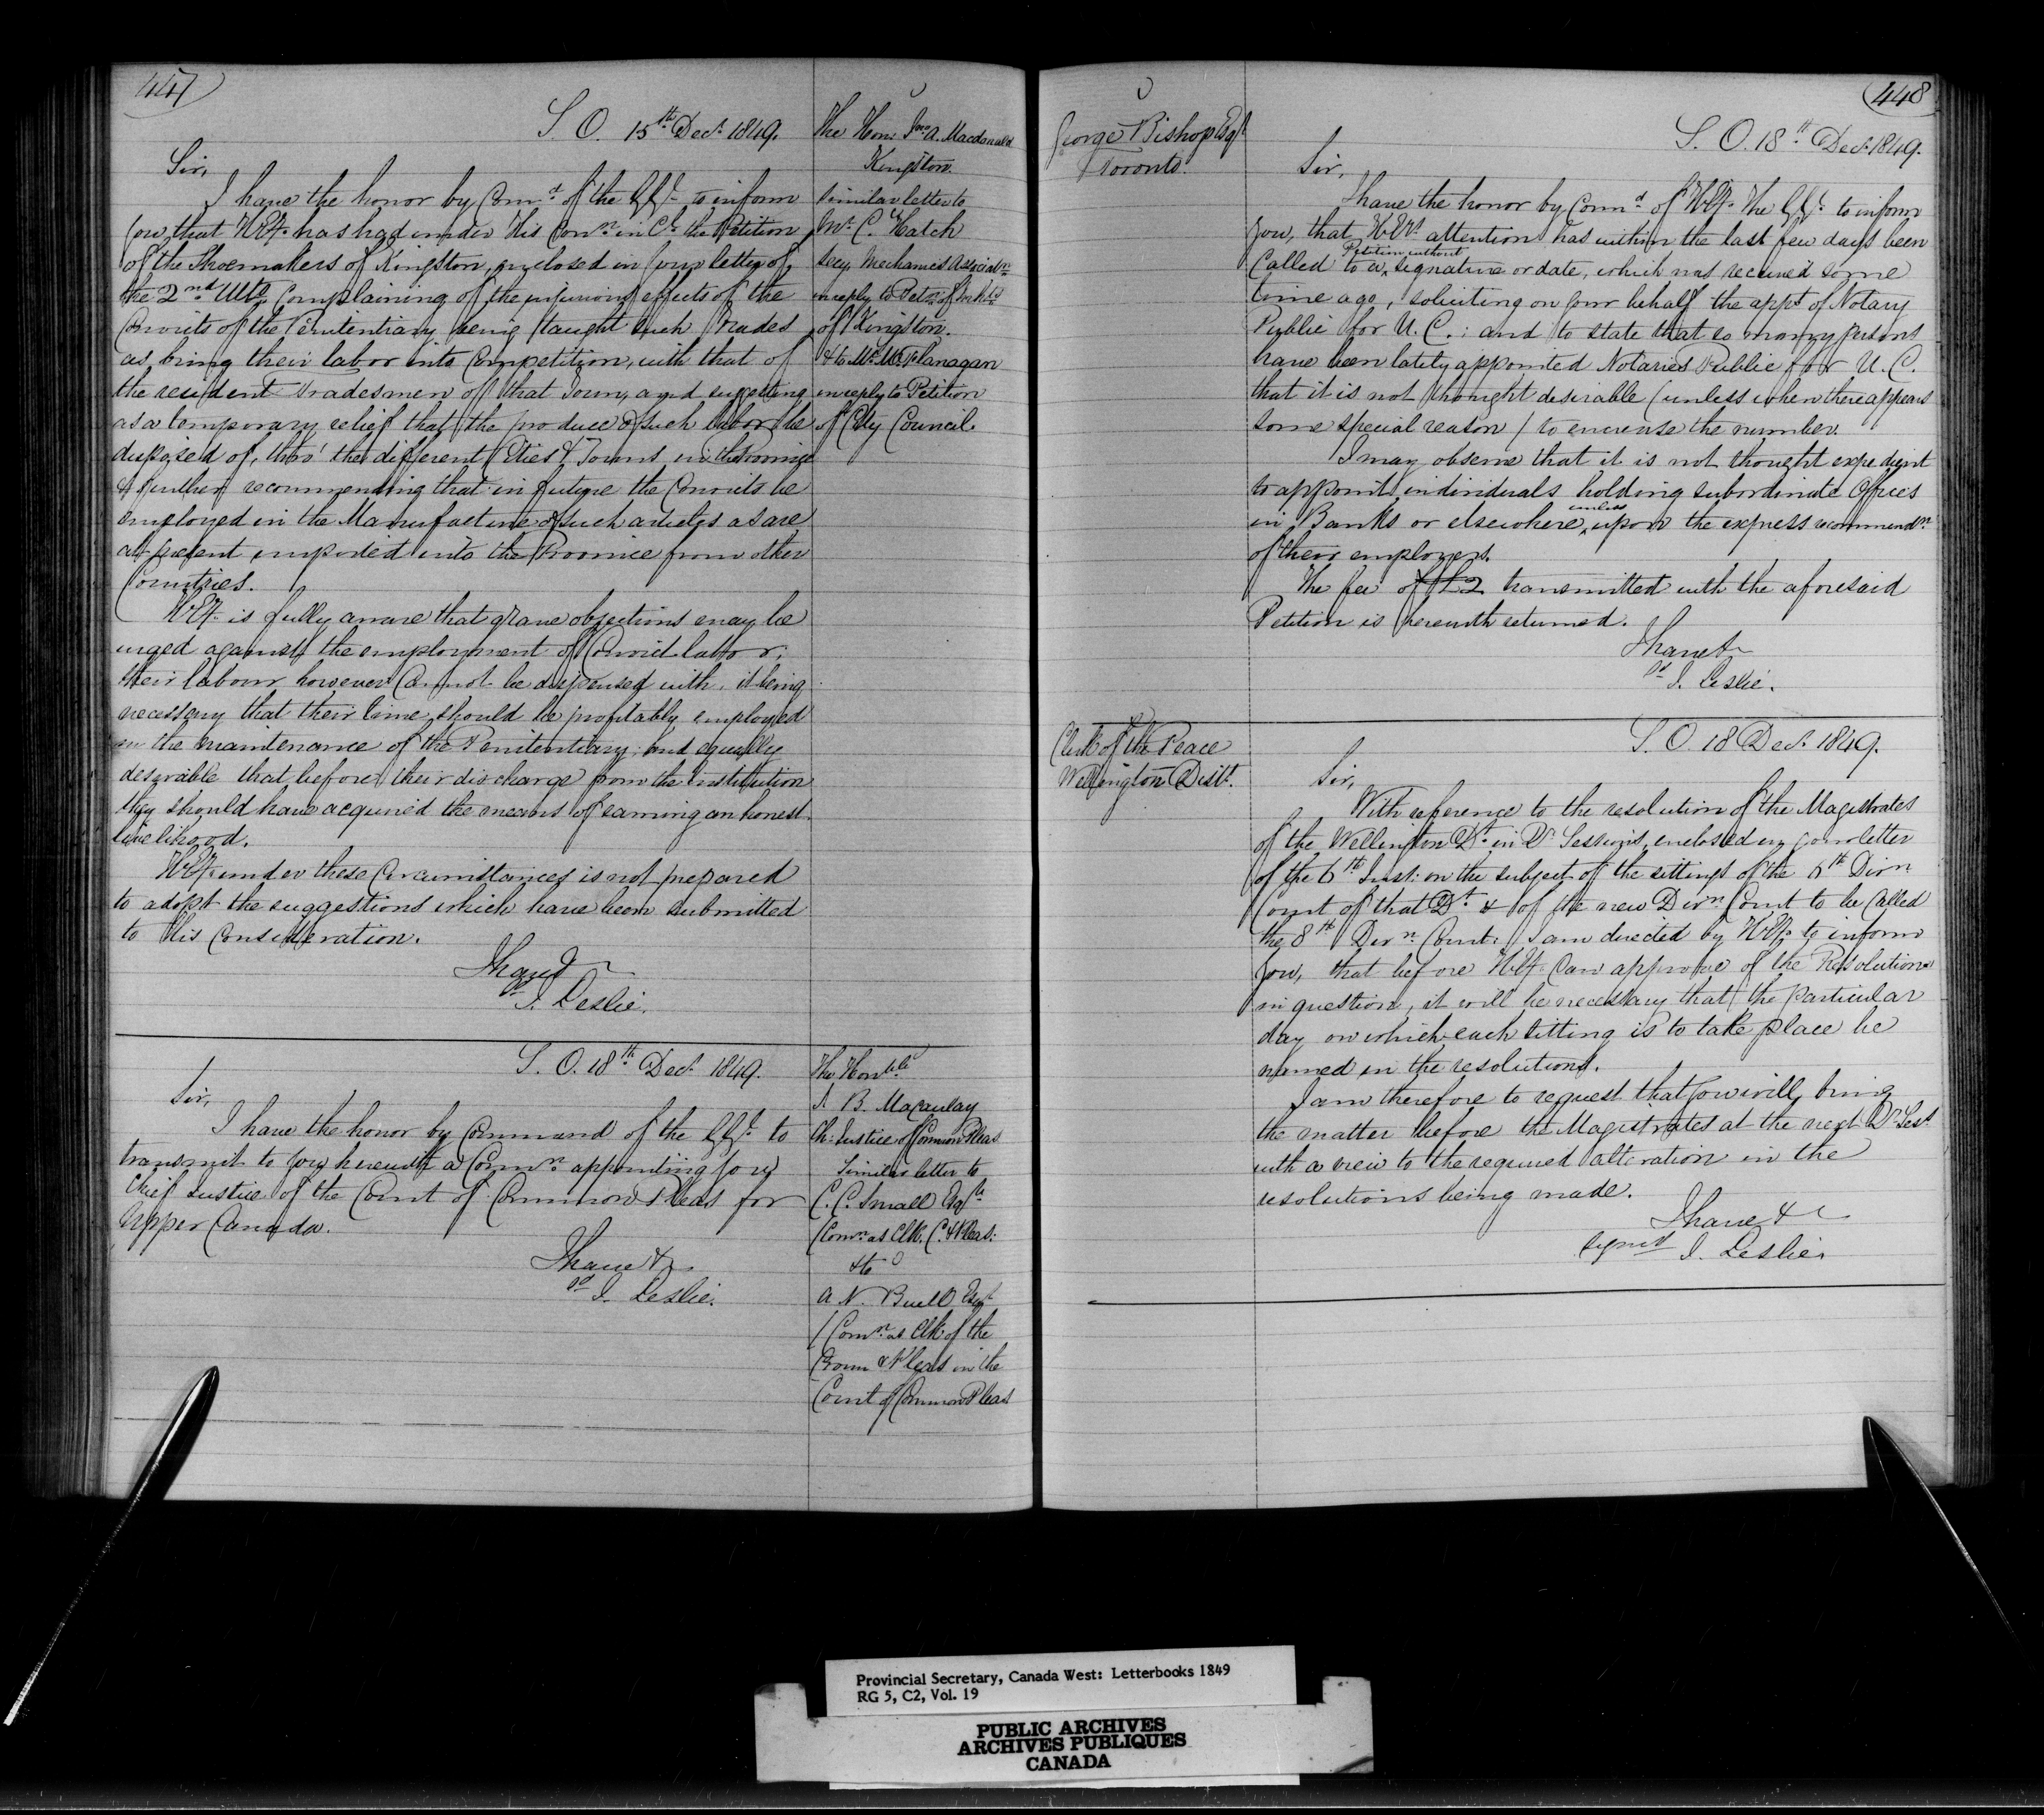 447
S. O. 15th Decr. 1849.
Sir,
I have the honor by Comd. of the G.G. to inform
you, that H.Ey. has had under His Conn. in Cl. the Petition
of the Shoemakers of Kingston, enclosed in your letter of
the 2nd Ulto, Complaining of the injurious effects of the
Convicts of the Penitentiary being taught such trades
as bring their labor into Competition, with that of
the resident tradesmen of that Town, and suggesting
as a temporary relief that the produce of such labor be
disposed of, thro' the different Cities & Towns in the Province
& further recommending that in future the Convicts be
employed in the Manufacture of such articles as are
at present imported into the Province from other
Countries.
H.Ey. is fully aware that grave objections may be
urged against the employment of Convict labor;
their labour however Cannot be dispensed with, it being
necessary that their time should be profitably employed
in the maintenance of the Penitentiary; and equally
desirable that before their discharge from the institution
they should have acquired the means of earning an honest
livelihood.
H.Ey. under these Circumstances is not prepared
to adopt the suggestions which have been submitted
to His Consideration.
I have &
sd J. Leslie.
The Hon. Jno A. Macdonald
Kingston.
Similar letter to
Mr. C. Hatch
Secy. Mechanics Associatn
in reply to Petn. of
of Kingston.
& to Mr. M. Flanagan
in reply to Petition
of City Council.
S. O. 18th Decr. 1849.
Sir,
I have the honor by Command of the G.G. to
transmit to you herewith a Comn. appointing you
Chief Justice of the Court of Common Pleas for
Upper Canada.
I have &
sd J. Leslie.
The Honble
J. B. Macaulay
Ch: Justice of Common Pleas
Similar letter to
C. C. Small Esqre
(Comn. as Clk. C. & Pleas:
& to
A. N. Buell Esqr
(Comn. as Clk of the
Crown & Pleas in the
Court of Common Pleas
448
George Bishop Esqr
Toronto.
S. O. 18th Decr. 1849.
Sir,
I have the honor by Comd. of H.Ey. The G.G. to inform
you, that H.Ey's. attention has within the last few days been
Called to a Petition without signature or date, which was received some
time ago, soliciting on your behalf the appt. of Notary
Public for U. C.; and to state that so many persons
have been lately appointed Notaries Public for U. C.
that it is not thought desirable (unless when there appears
some special reason) to encrease the number.
I may observe that it is not thought expedient
to appoint individuals holding subordinate Offices
in Banks or elsewhere, unless upon the express recommendn.
of their employers.
The fee of £2 transmitted with the aforesaid
Petition is herewith returned.
I have &
sd J. Leslie.
Clerk of the Peace
Wellington Distt.
S. O. 18 Decr. 1849.
Sir,
With reference to the resolution of the Magistrates
of the Wellington Dt. in Qr. Sessions, enclosed in your letter
of the 6th Inst: on the subject of the sittings of the 6th Divn
Court of that Dt. & of the new Divn. Court to be Called
the 8th Divn. Court: I am directed by H.Ey. to inform
you, that before H.Ey. Can approve of the Resolutions
in question, it will be necessary that the particular
day on which each sitting is to take place be
named in the resolutions.
I am therefore to request that you will bring
the matter before the Magistrates at the next Qr. Sess.
with a view to the required alteration in the
resolutions being made.
I have &
signed J. Leslie.
Provincial Secretary, Canada West: Letterbooks 1849
RG 5, C2, Vol. 19
PUBLIC ARCHIVES
ARCHIVES PUBLIQUES
CANADA